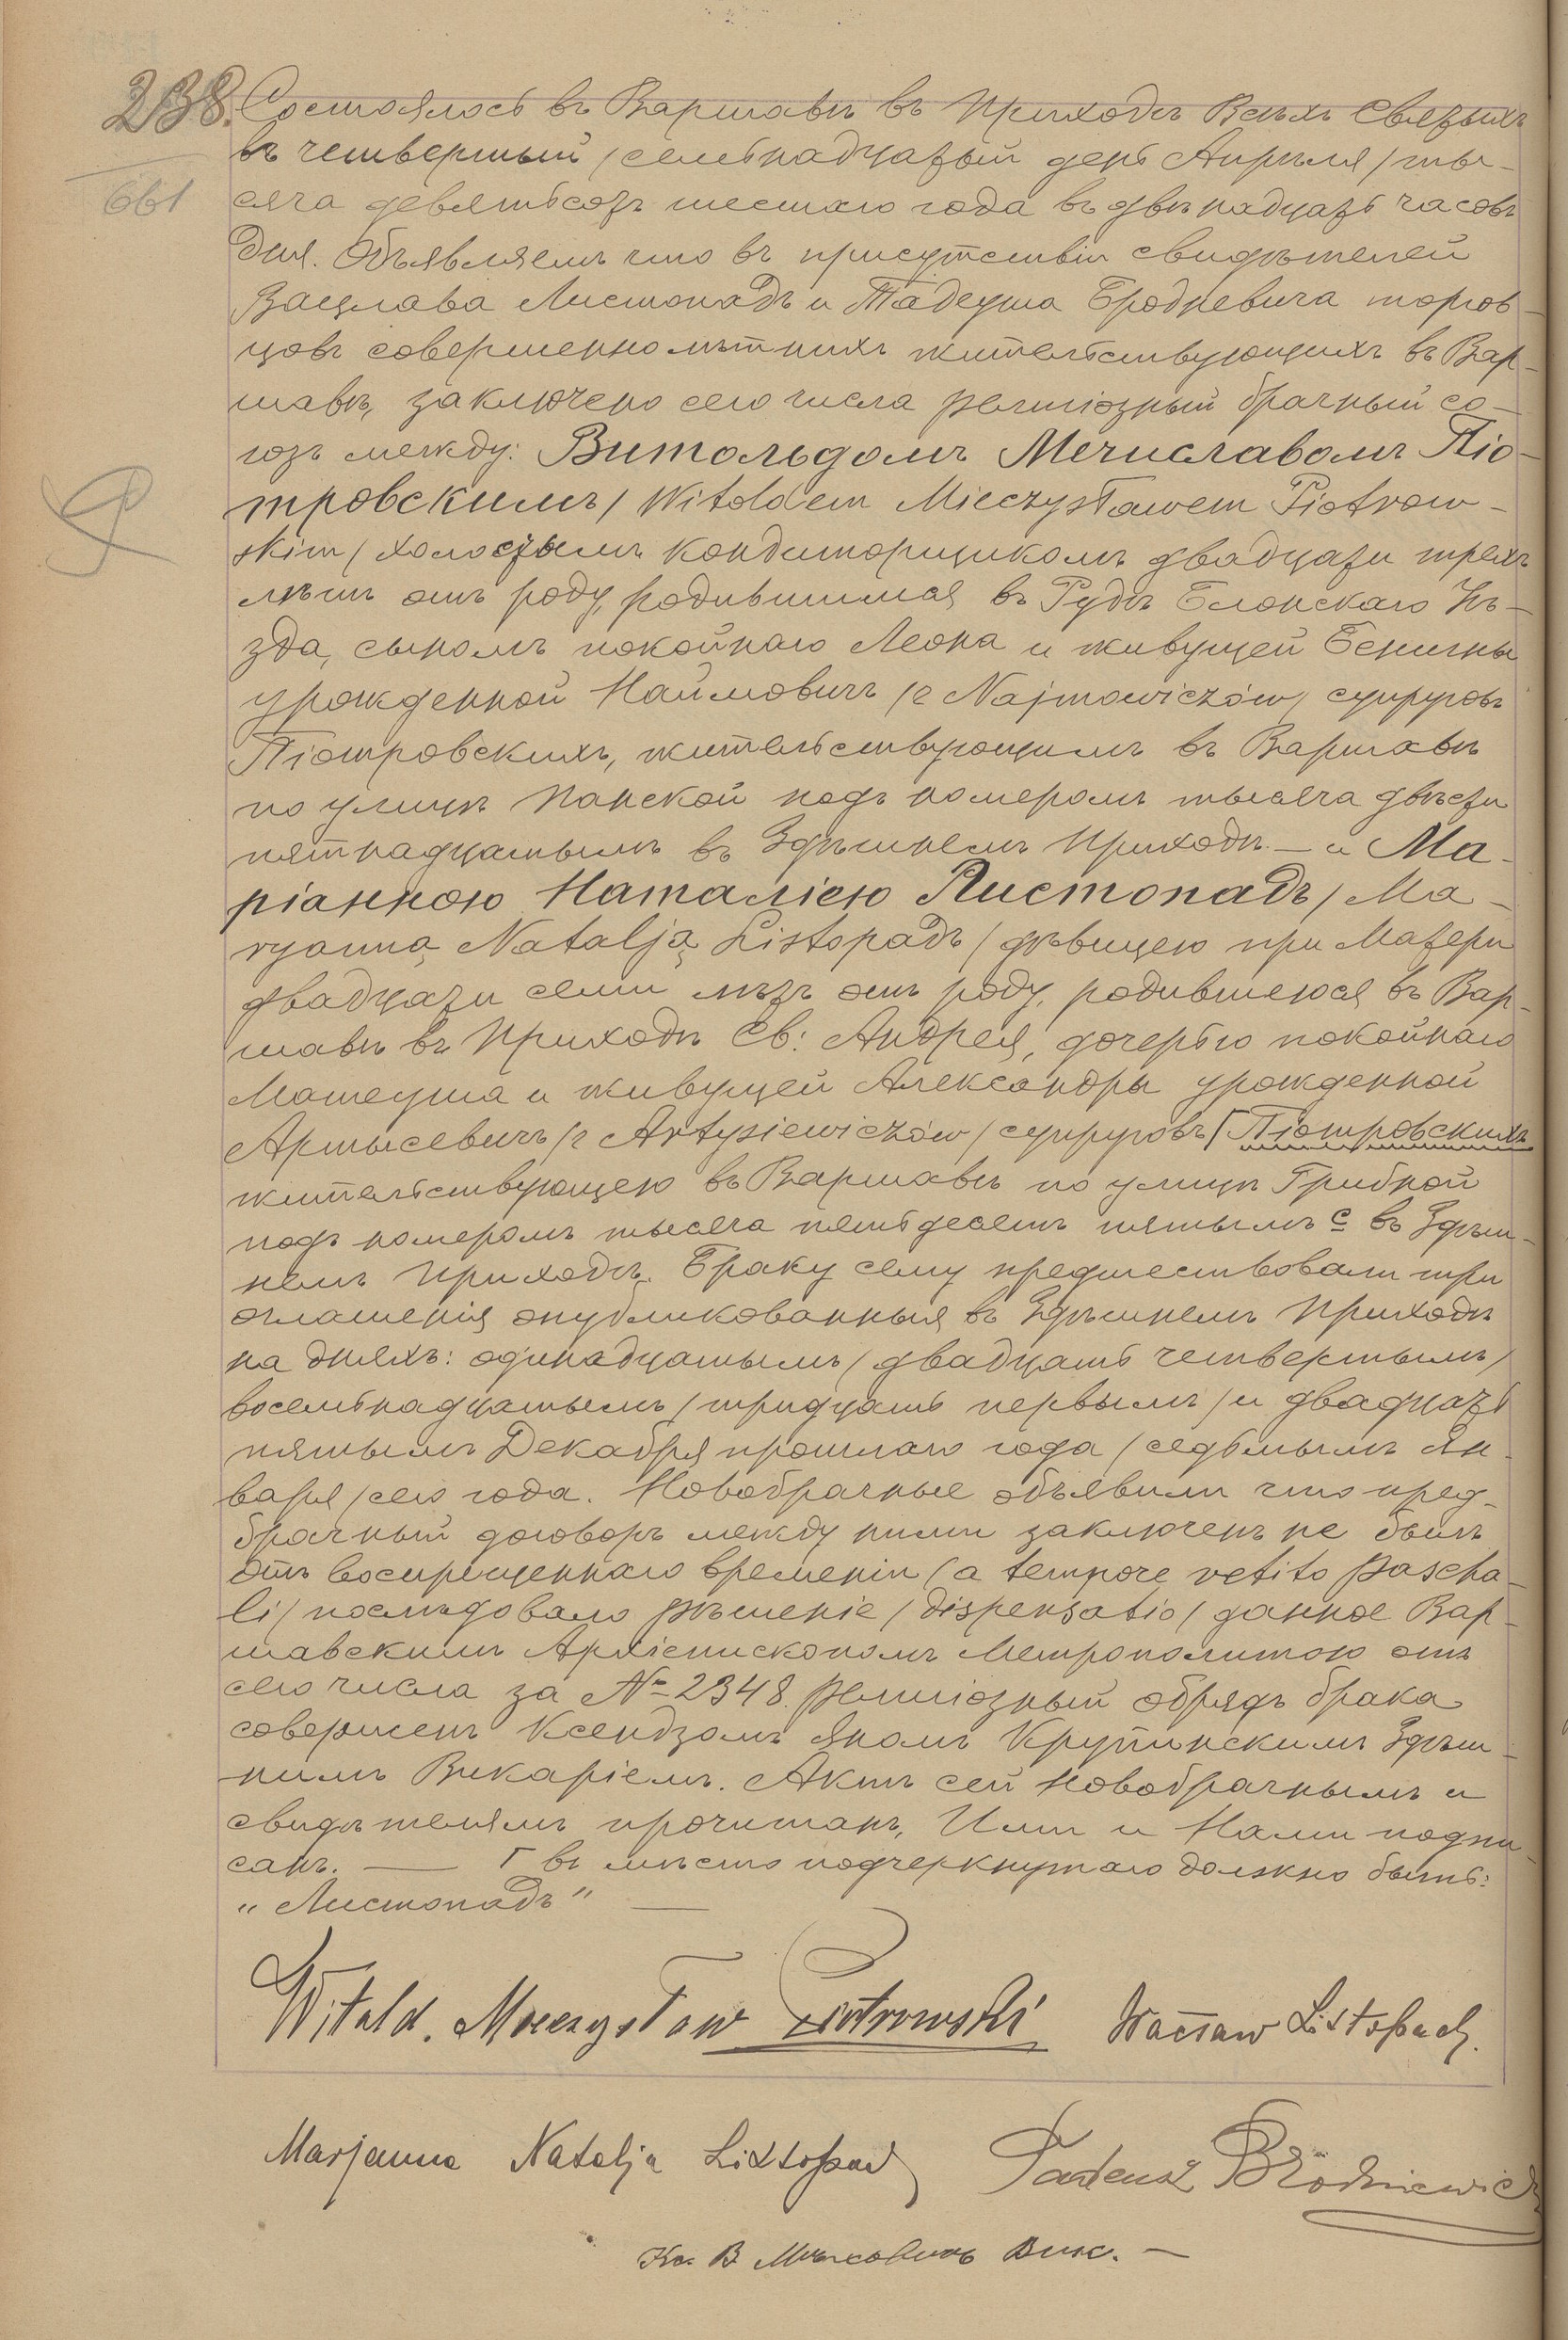 238. Состоялось въ Варшавѣ въ Приходѣ Всѣхъ Святыхъ
661
въ четвертый / семьнадцатый день Апрѣля / ты-
сяча девятьсотъ шестаго года въ двѣнадцать часовъ
дня. Объявляемъ что въ присутствіи свидѣтелей
Вацлава Листопадъ и Тадеуша Бродневича торгов-
цовъ совершеннолѣтнихъ жительствующихъ въ Вар-
шавѣ, заключено сего числа религіозный брачный со-
юзъ между: Витольдомъ Мечиславомъ Піо-
тровскимъ / Witoldem Mieczysławem Piotrow-
skim / холостымъ кондиторщикомъ двадцати трехъ
лѣтъ отъ роду, родившимся въ Рудѣ Блонскаго Уѣ-
зда, сыномъ покойнаго Леона и живущей Бенигны
урожденной Наймовичъ / z Najmowiczów / супруговъ
Піотровскихъ, жительствующимъ въ Варшавѣ
по улицѣ Панской подъ номеромъ тысяча двѣсти
пятнадцатымъ въ Здѣшнемъ Приходѣ — и Ма-
ріанною Наталіею Листопадъ / Ma-
ryanną Natalją Listopadъ / дѣвицею при Матери
двадцати семи лѣтъ отъ роду, родившеюся въ Вар-
шавѣ въ Приходѣ Св: Андрея, дочерью покойнаго
Матеуша и живущей Александры урожденной
Артысевичъ / z Artysiewiczów / супруговъ Г Піотровскихъ
жительствующею въ Варшавѣ по улицѣ Грибной
подъ номеромъ тысяча пятьдесятъ пятымъ с въ Здѣш-
немъ Приходѣ. Браку сему предшествовали три
оглашенія опубликованныя въ Здѣшнемъ Приходѣ
на дняхъ: одинадцатымъ / двадцать четвертымъ /
восемьнадцатымъ / тридцать первымъ / и двадцать
пятымъ Декабря прошлаго года / седьмымъ Ян-
варя / сего года. Новобрачные объявили что пред-
брачный договоръ между ними заключенъ не былъ
Отъ воспрещеннаго временіи / a tempore vetito pascha-
li / послѣдовало рѣшеніе / dispensatio / данное Вар-
шавскимъ Архіепископомъ Метрополитою отъ
сего числа за № 2348. Религіозный обрядъ брака
совершенъ Ксендзомъ Яномъ Крупинскимъ Здѣш-
нимъ Викаріемъ. Актъ сей Новобрачнымъ и
свидѣтелямъ прочитанъ, Ими и Нами подпи-
санъ. — Г въ мѣсто подчеркнутаго должно быть:
„Листопадъ" —
Witold. Mieczysław Piotrowski Wacław Listopad.
Marjanna Natalja Listopad Tadeusz Brodniewicz
Кс. В Вик. —